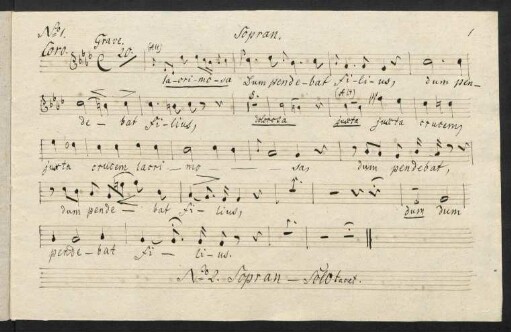 No 1. Sopran. 1
Coro. Grave. 20. (Alt)
la-cri-mo-sa Dum pende-bat Fi-li-us, dum pen-
de-bat Filius, dolorosa (Alt) juxta juxta crucem,
juxta crucem lacri-mo-sa, dum pendebat,
dum pende-bat Fi-lius, dum dum
pende-bat Fi-li-us.
No 2. Sopran-Solo tacet.